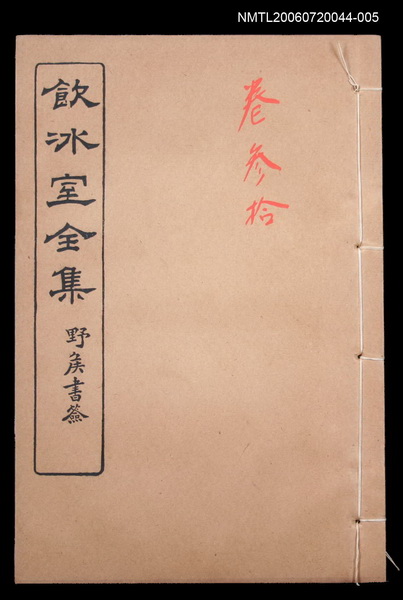 NMTL20060720044-005
卷参拾
飲冰室全集
野矦書簽